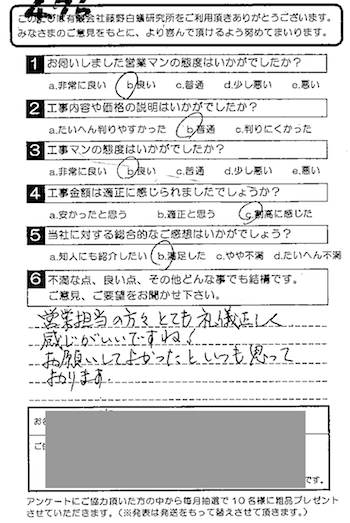 このたびは有限会社藤野白蟻研究所をご利用頂きありがとうございます。
みなさまのご意見をもとに、より喜んで頂けるよう努めてまいります。
1 お伺いしました営業マンの態度はいかがでしたか？
a.非常に良い b.良い c.普通 d.少し悪い e.悪い
2 工事内容や価格の説明はいかがでしたか？
a.たいへん判りやすかった b.普通 c.判りにくかった
3 工事マンの態度はいかがでしたか？
a.非常に良い b.良い c.普通 d.少し悪い e.悪い
4 工事金額は適正に感じられましたでしょうか？
a.安かったと思う b.適正と思う c.割高に感じた
5 当社に対する総合的なご感想はいかがでしょう？
a.知人にも紹介したい b.満足した c.やや不満 d.たいへん不満
6 不満な点、良い点、その他どんな事でも結構です。
ご意見、ご要望をお聞かせ下さい。
営業担当の方々とても礼儀正しく
感じがいいですね！
お願いしてよかったといつも思って
おります。
お
ご
です。
アンケートにご協力頂いた方の中から毎月抽選で10名様に粗品プレゼント
させていただきます。（※発表は発送をもって替えさせて頂きます。）